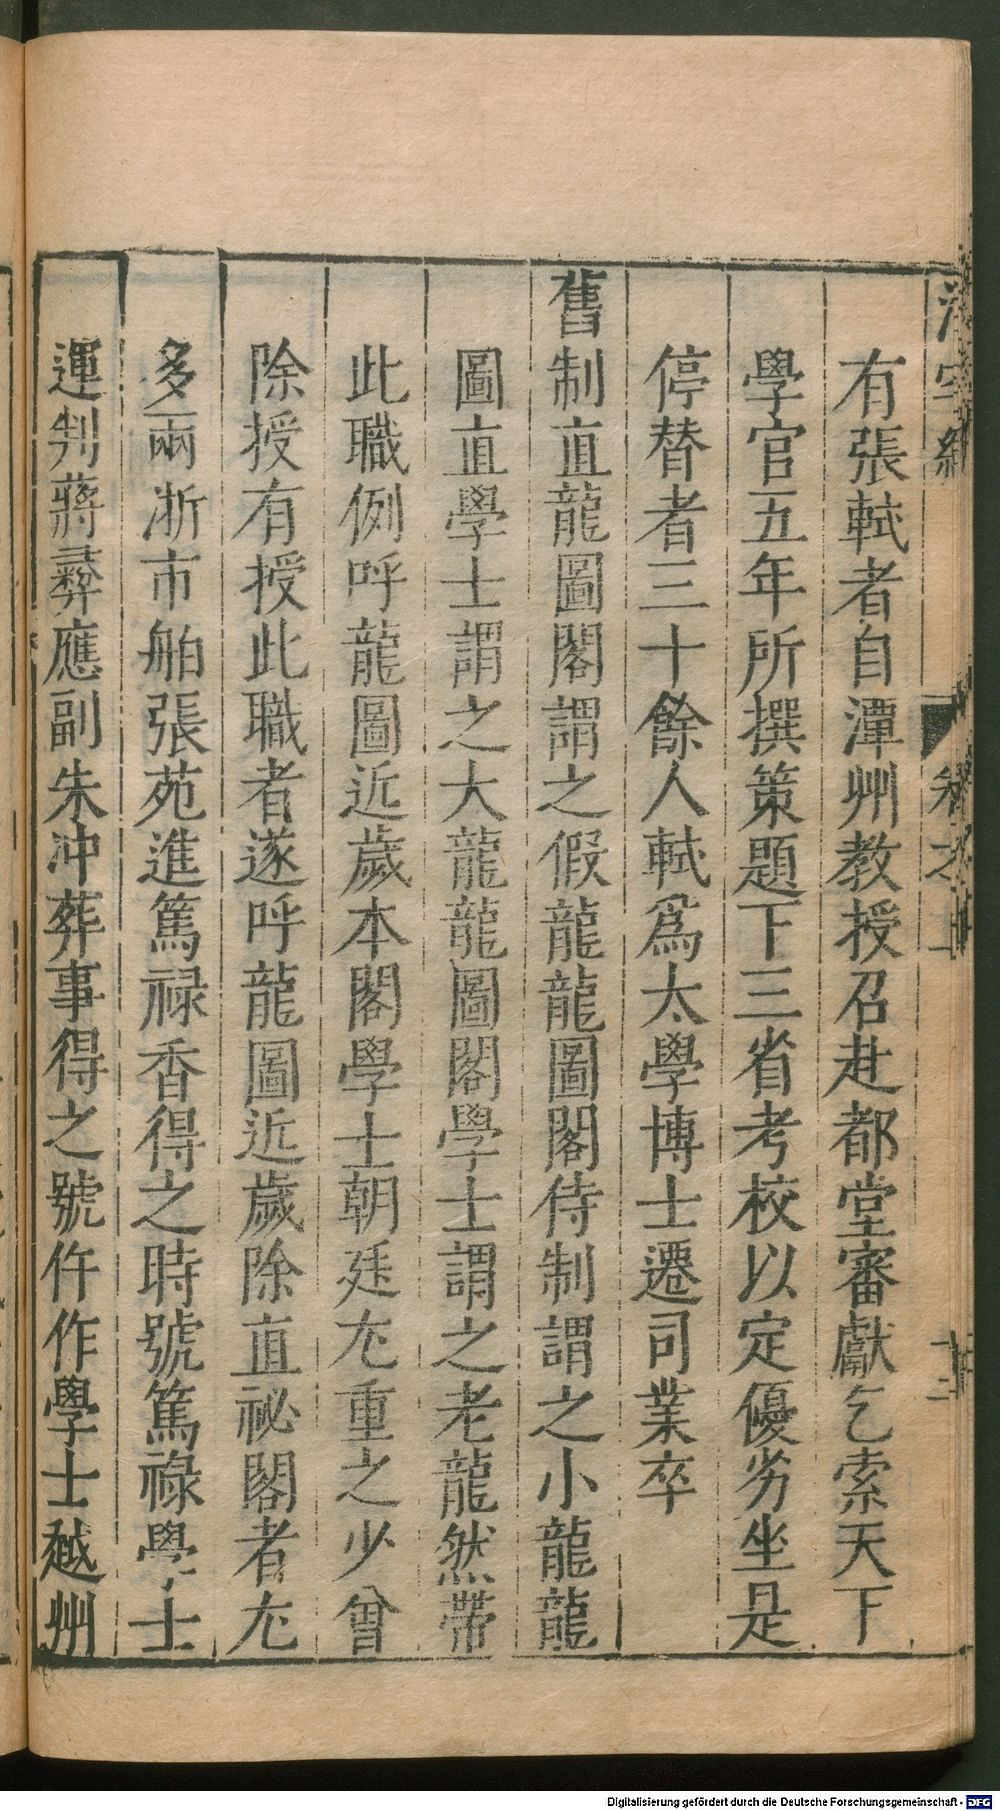 有張軾者自潭州教授召赴都堂審獻乞索天下
學官五年所撰策題下三省考校以定優劣坐是
停替者三十餘人軾爲太學博士遷司業卒
舊制直龍圖閣謂之假龍龍圖閣侍制謂之小龍龍
圖直學士謂之大龍龍圖閣學士謂之老龍然帶
此職例呼龍圖近歲本閣學士朝廷尤重之少曾
除授有授此職者遂呼龍圖近歲除直祕閣者尤
多兩浙市舶張苑進篤祿香得之時號篤祿學士
運判蔣彝應副朱冲葬事得之號仵作學士越州
卷之
十二
Digitalisierung gefördert durch die Deutsche Forschungsgemeinschaft - DFG